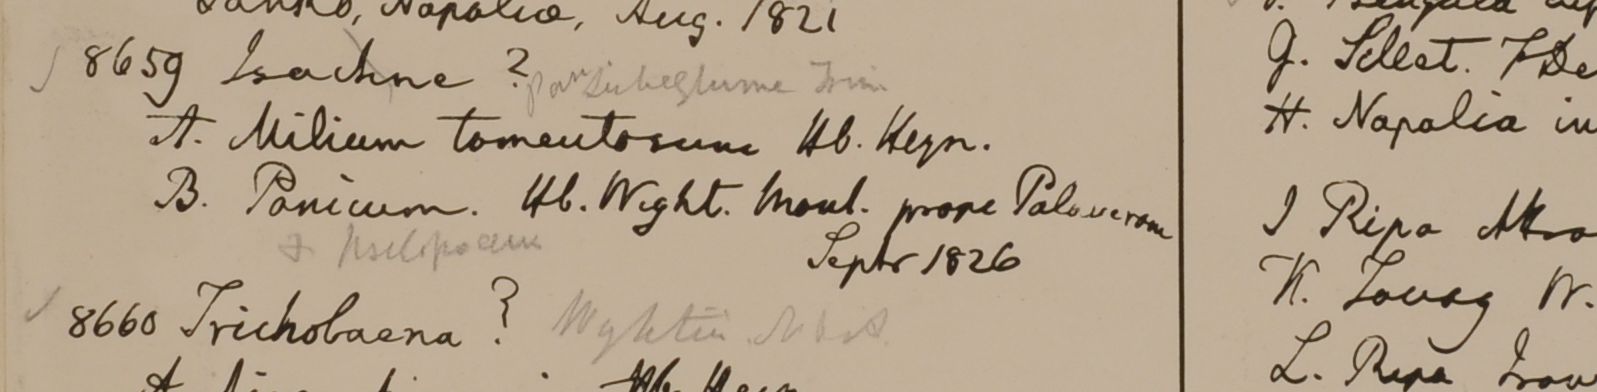 Napalia, Aug. 1821
8659 Isachne ?
A. Milium tomentosum Hb. Heyn.
B. Panicum. Hb. Wight. Mont. prope Palaveram
Septr 1826
8660 Tricholaena ? Wightii
A Hb. Heyn
G. Sillet.
H. Napalia in
I Ripa
K. Tavoy W.
L. Ripa